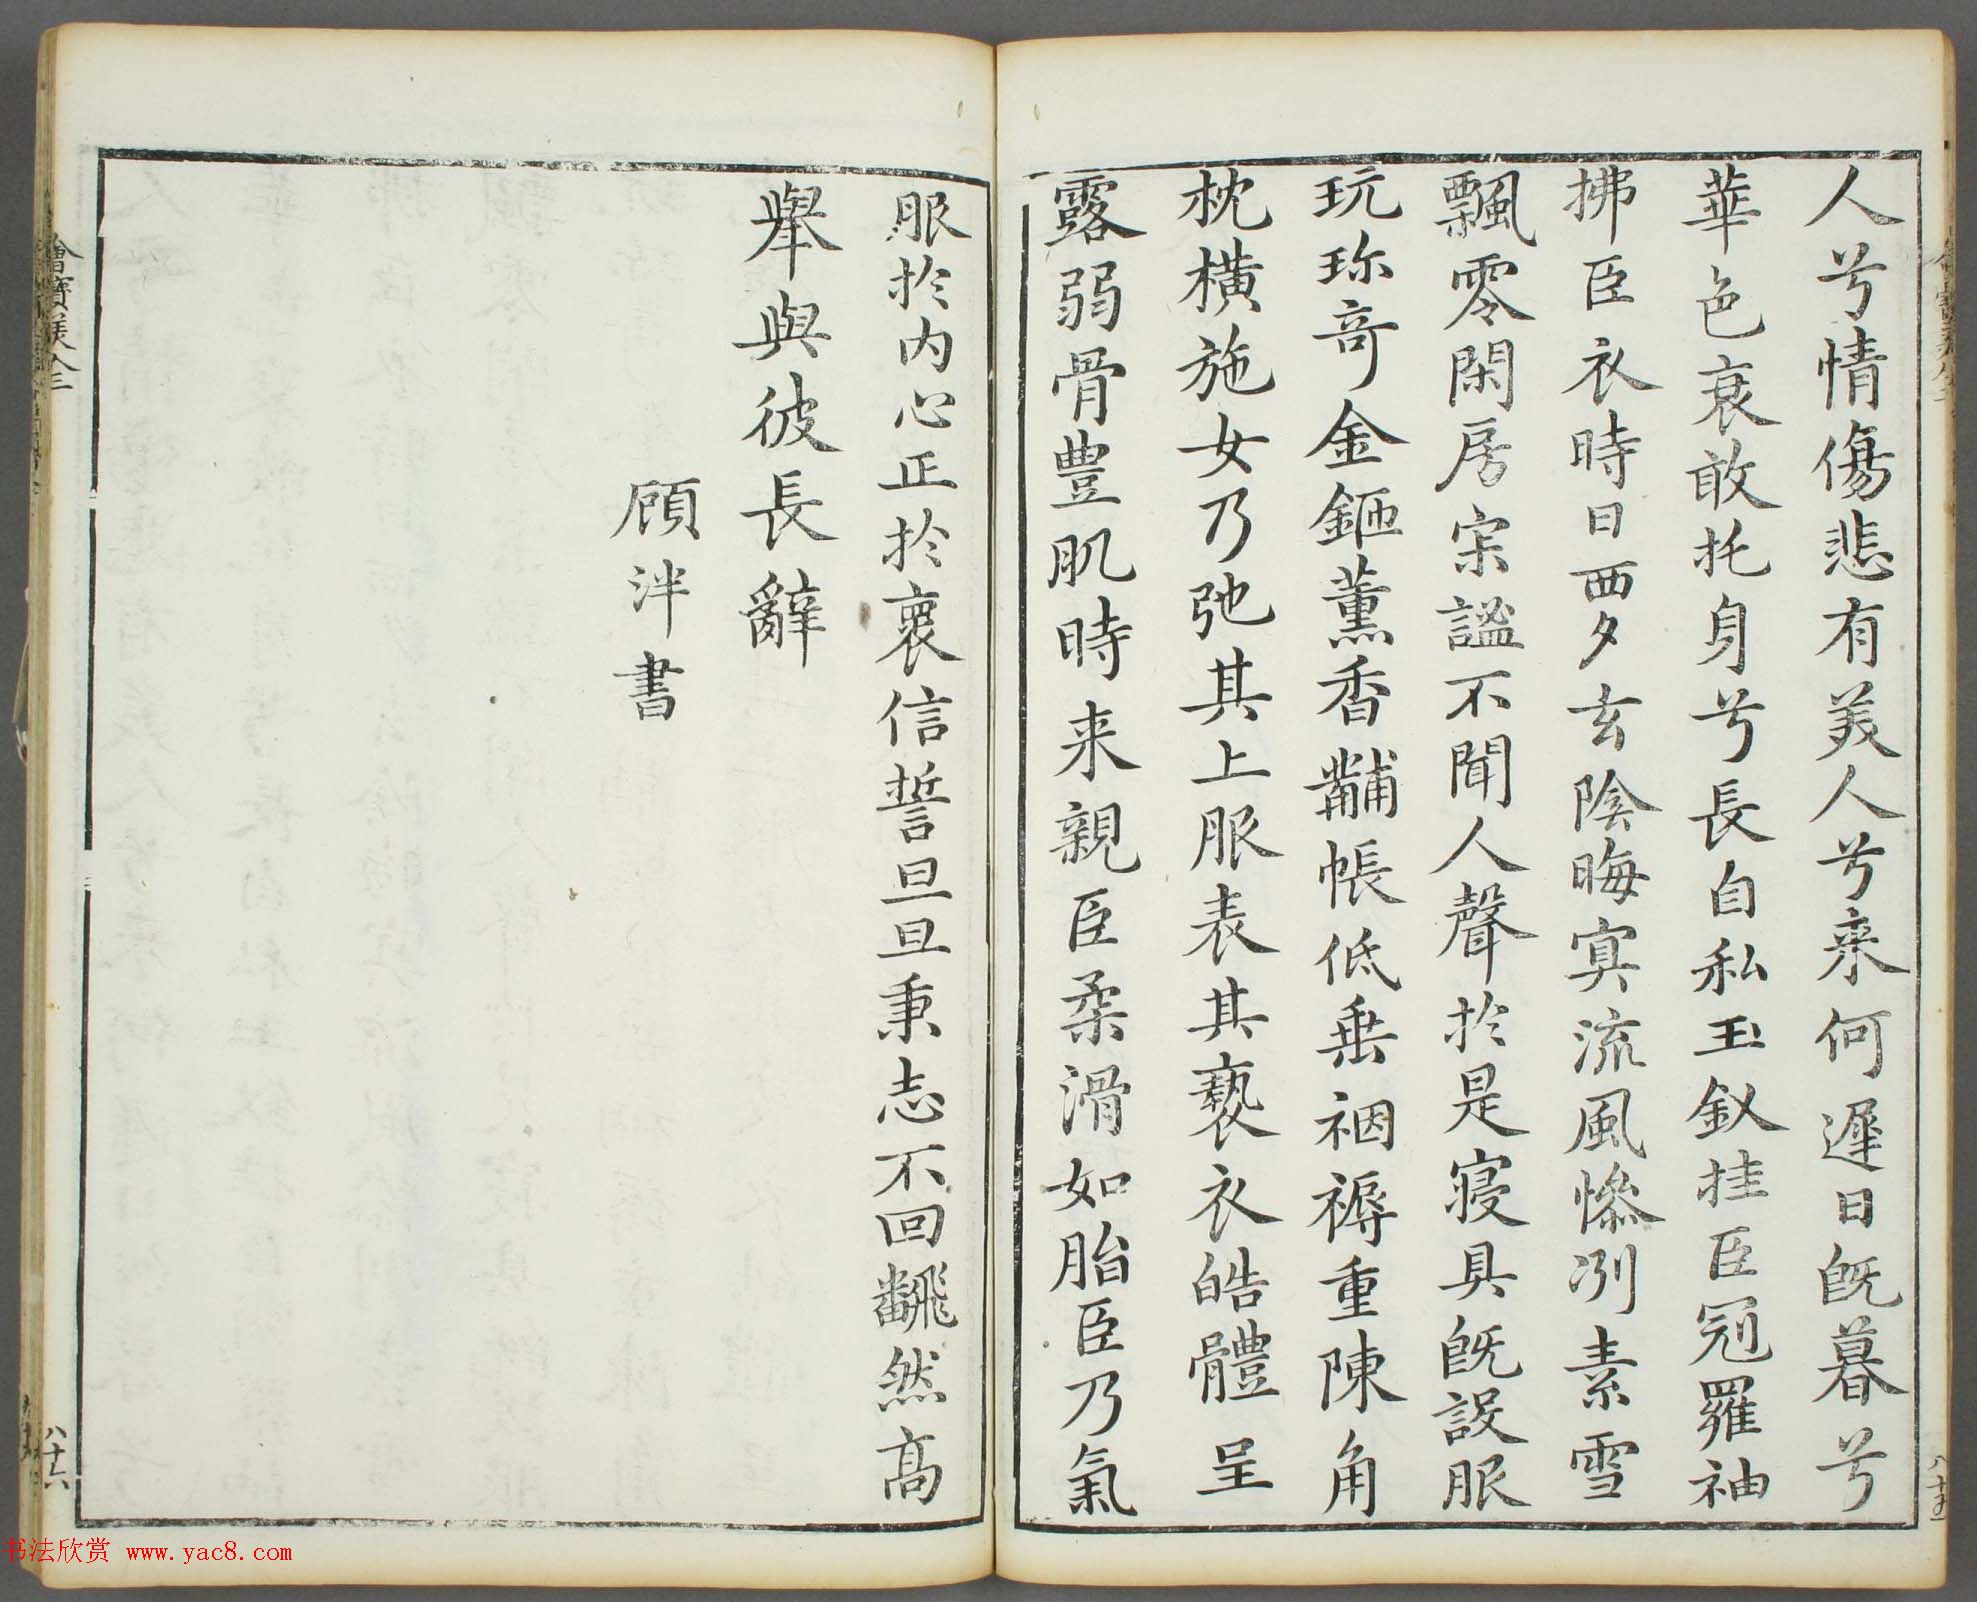 人兮情傷悲有美人兮来何遲日既暮兮
華色衰敢托身兮長自私玉釵挂臣冠羅袖
拂臣衣時日西夕玄陰晦寘流風慘冽素雪
飄零閑房寂謐不聞人聲於是寢具既設服
玩珎奇金鉔薰香黼帳低垂裀褥重陳角
枕橫施女乃弛其上服表其褻衣皓體呈
露弱骨豊肌時来親臣柔滑如脂臣乃氣
服於内心正於褱信誓旦旦秉志不回飜然高
舉與彼長辭
顧泮書
八十六
书法欣赏 www.yac8.com